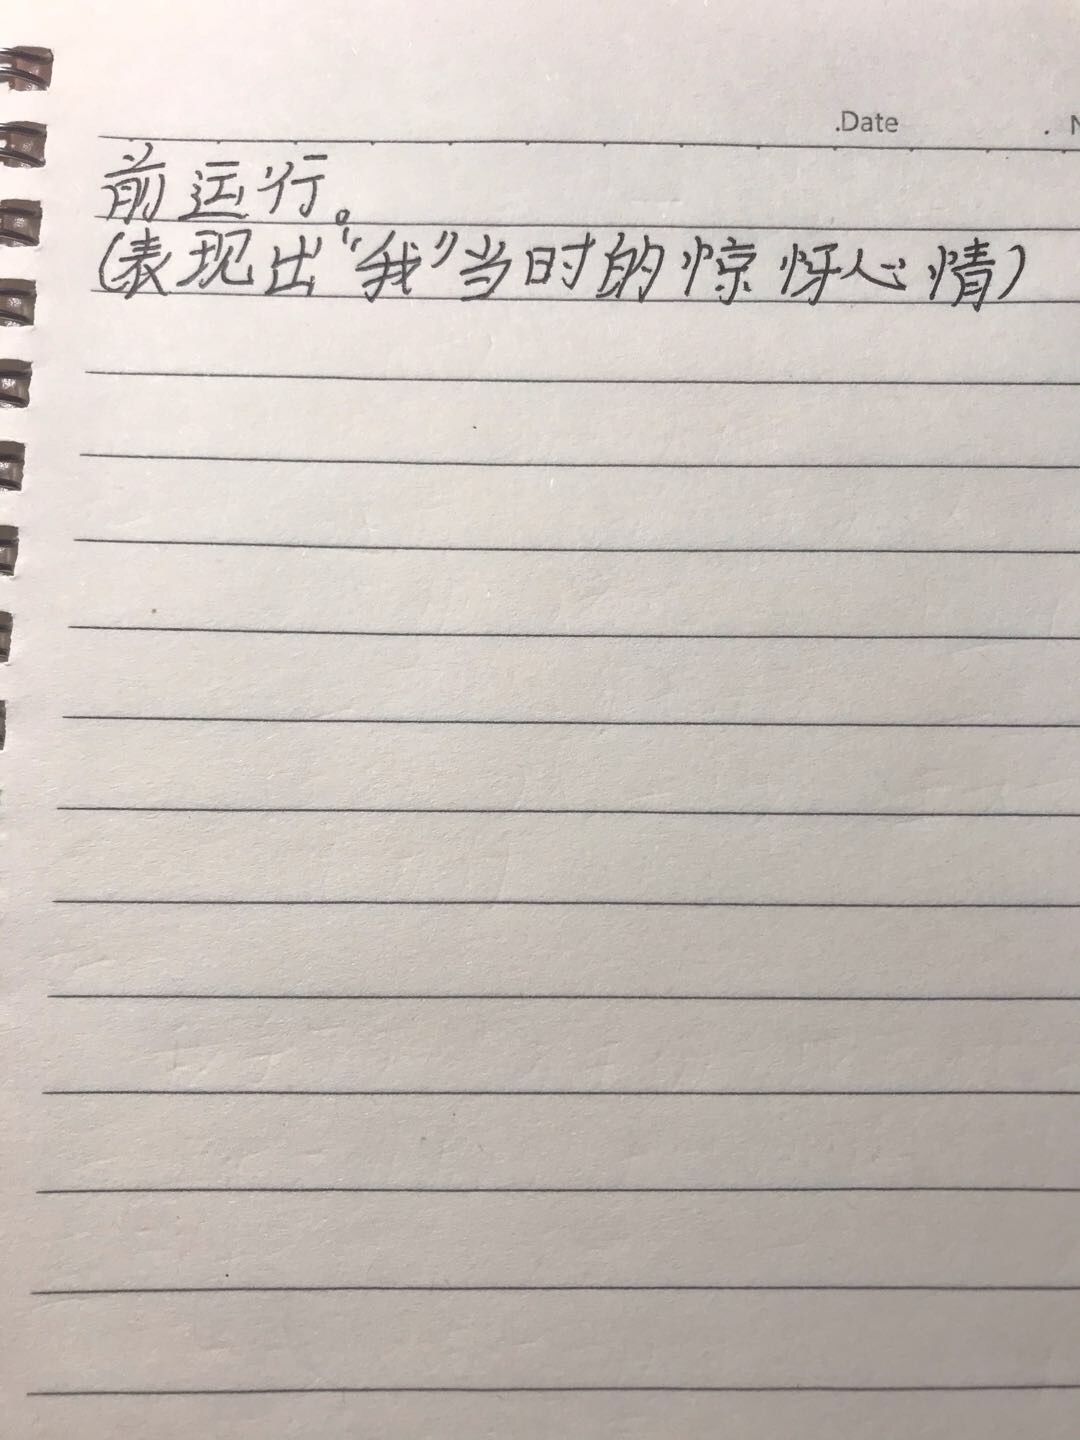 .Date
前运行。
(表现出“我”当时的惊讶心情)